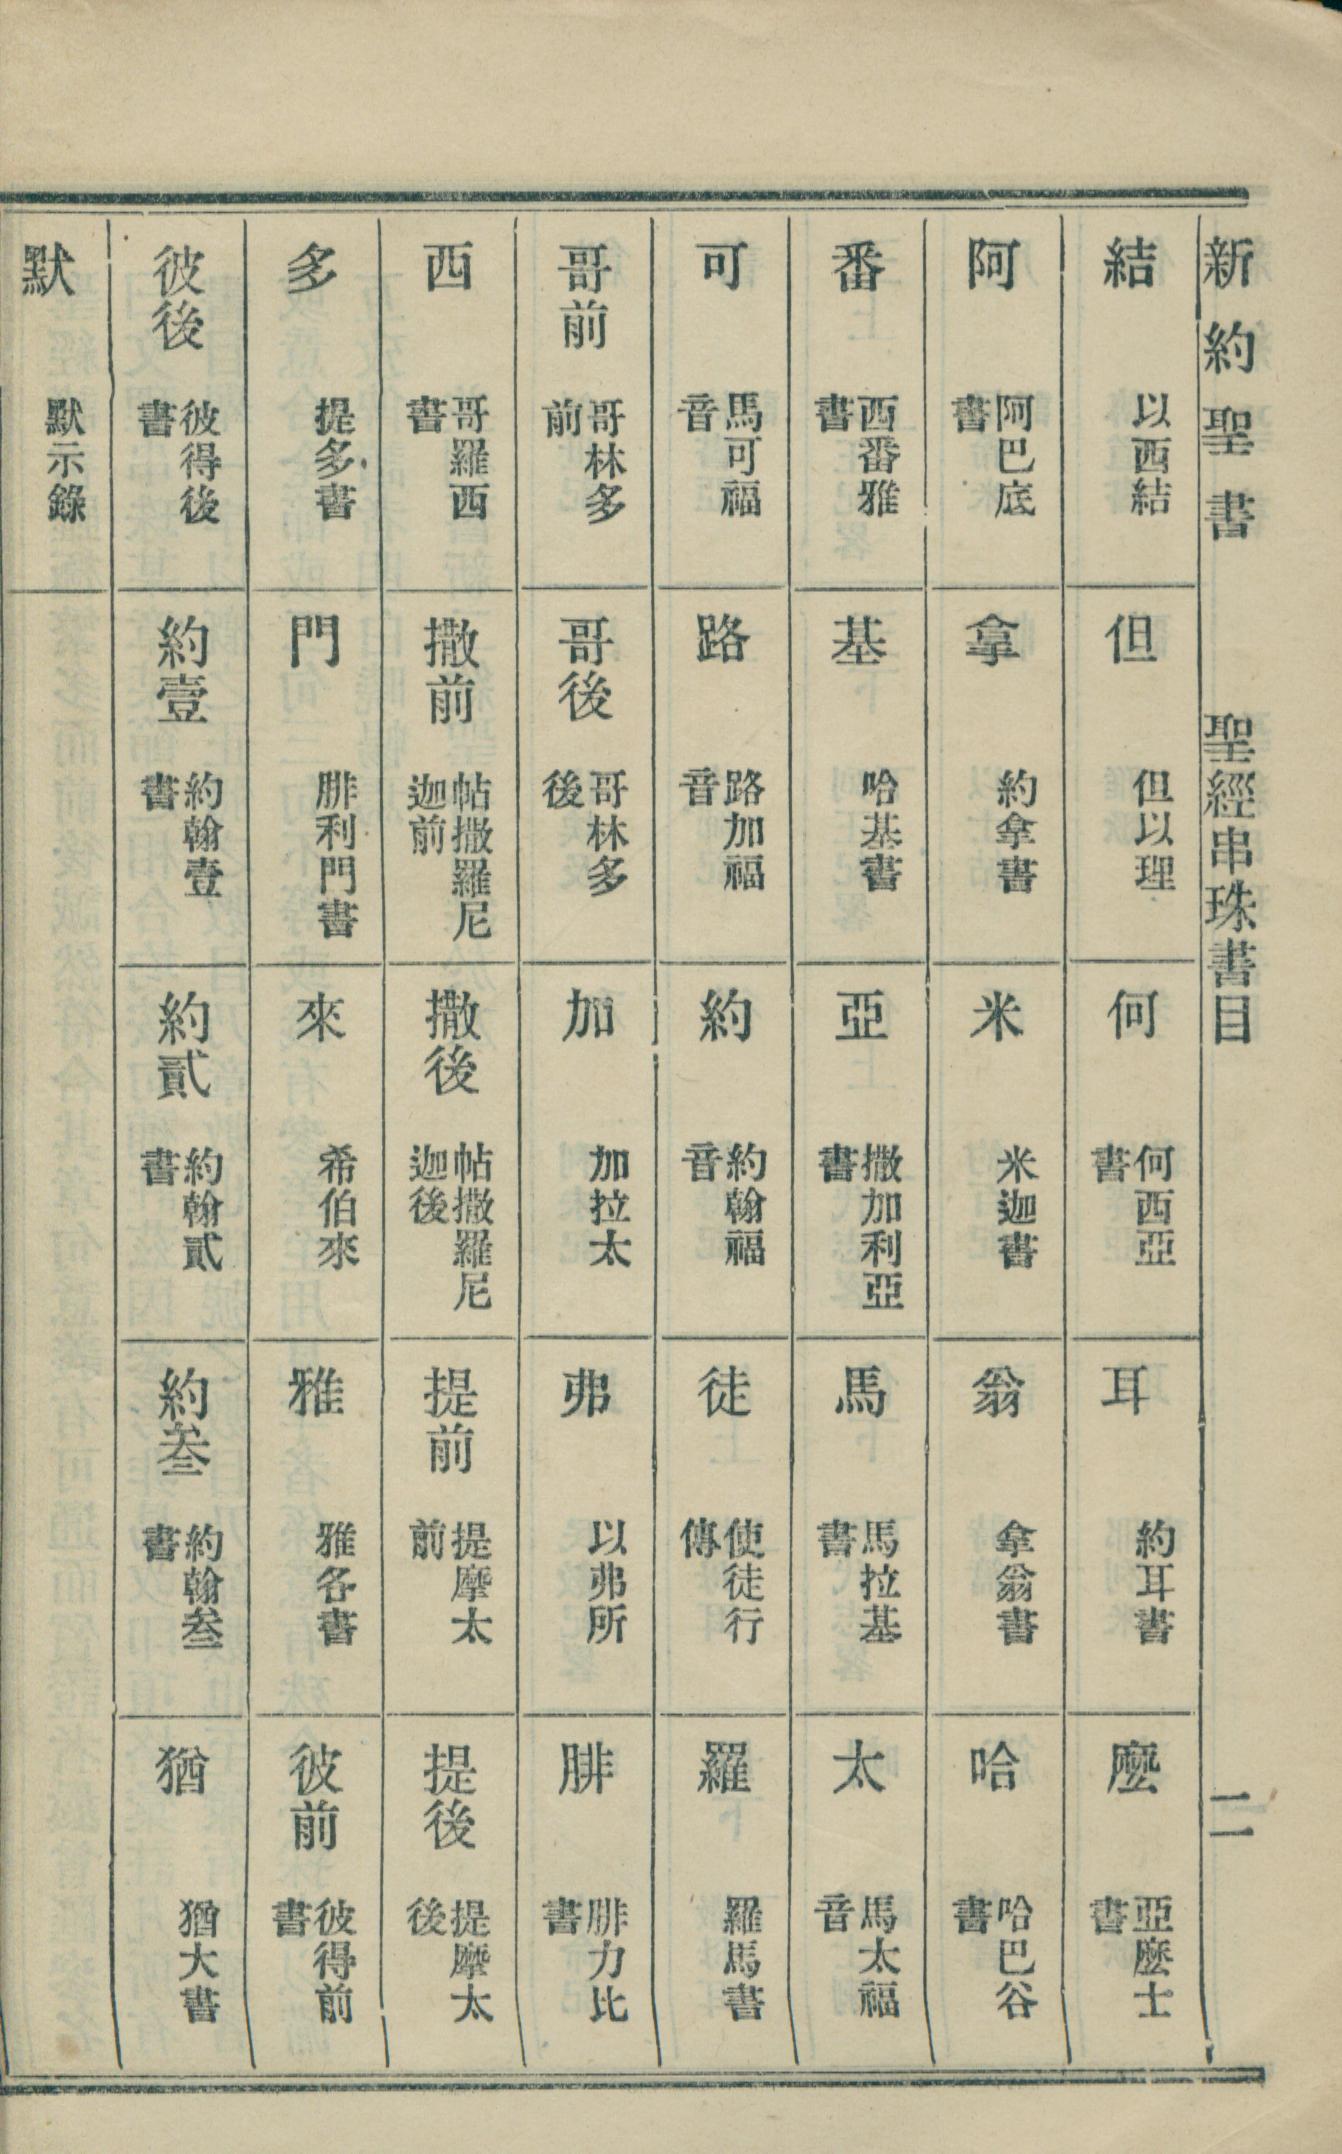 新約聖書 聖經串珠書目 二
結 以西結
但 但以理
何 何西亞書
耳 約耳書
麼 亞麼士書
阿 阿巴底書
拿 約拿書
米 米迦書
翁 拿翁書
哈 哈巴谷書
番 西番雅書
基 哈基書
亞 撒加利亞書
馬 馬拉基書
太 馬太福音
可 馬可福音
路 路加福音
約 約翰福音
徒 使徒行傳
羅 羅馬書
哥前 哥林多前
哥後 哥林多後
加 加拉太
弗 以弗所
腓 腓力比書
西 哥羅西書
撒前 帖撒羅尼迦前
撒後 帖撒羅尼迦後
提前 提摩太前
提後 提摩太後
多 提多書
門 腓利門書
來 希伯來
雅 雅各書
彼前 彼得前書
彼後 彼得後書
約壹 約翰壹書
約貳 約翰貳書
約叁 約翰叁書
猶 猶大書
默 默示錄